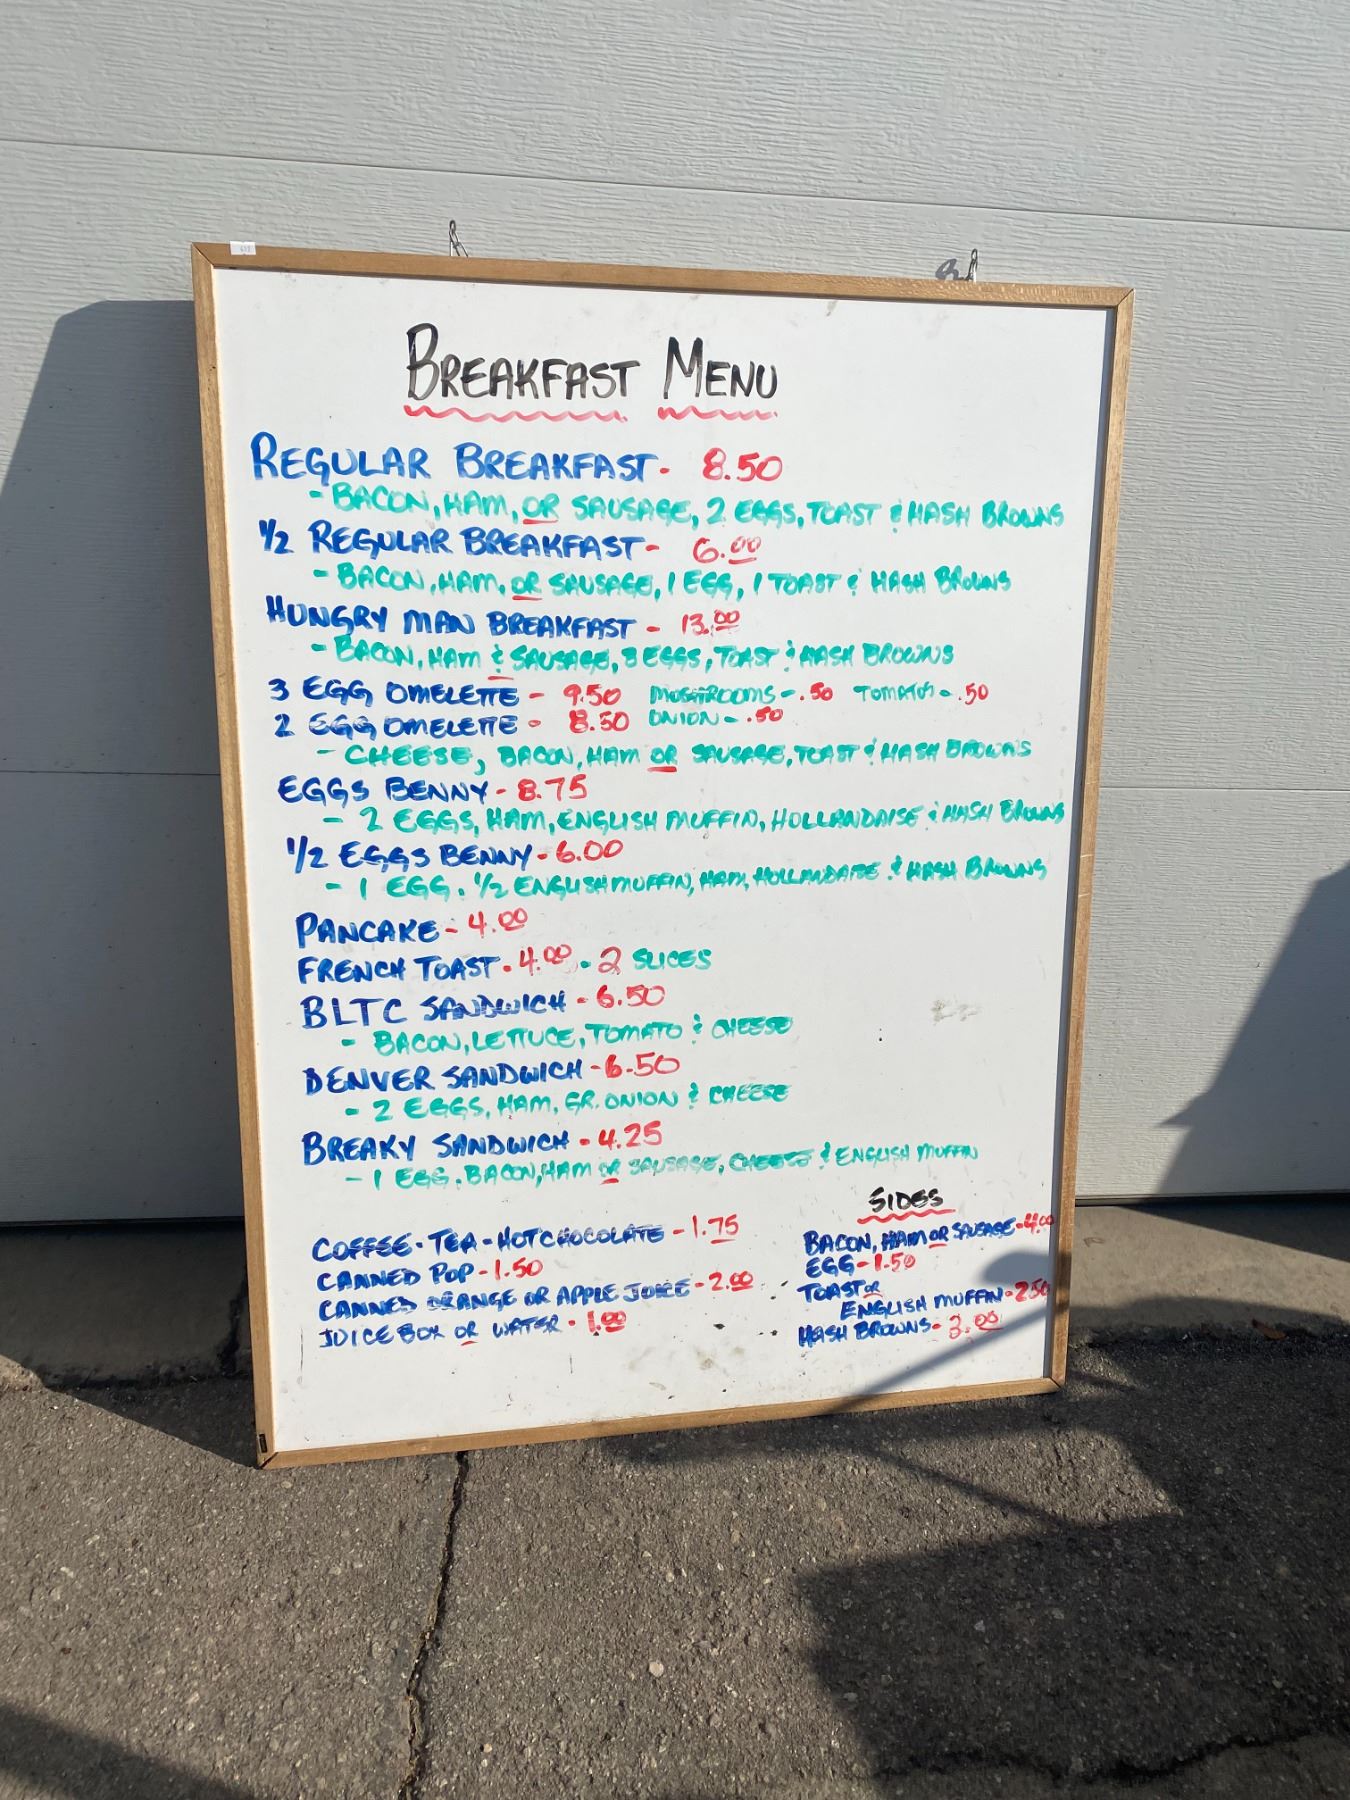 BREAKFAST MENU
REGULAR BREAKFAST - 8.50
- BACON, HAM, OR SAUSAGE, 2 EGGS, TOAST & HASH BROWNS
1/2 REGULAR BREAKFAST - 6.00
- BACON, HAM, OR SAUSAGE, 1 EGG, 1 TOAST & HASH BROWNS
HUNGRY MAN BREAKFAST - 13.00
- BACON, HAM & SAUSAGE, 3 EGGS, TOAST & HASH BROWNS
3 EGG OMELETTE - 9.50 MUSHROOMS - .50 TOMATO - .50
2 EGG OMELETTE - 8.50 ONION - .50
- CHEESE, BACON, HAM OR SAUSAGE, TOAST & HASH BROWNS
EGGS BENNY - 8.75
- 2 EGGS, HAM, ENGLISH MUFFIN, HOLLANDAISE & HASH BROWNS
1/2 EGGS BENNY - 6.00
- 1 EGG, 1/2 ENGLISH MUFFIN, HAM, HOLLANDAISE & HASH BROWNS
PANCAKE - 4.00
FRENCH TOAST - 4.00 - 2 SLICES
BLTC SANDWICH - 6.50
- BACON, LETTUCE, TOMATO & CHEESE
DENVER SANDWICH - 6.50
- 2 EGGS, HAM, GR. ONION & CHEESE
BREAKY SANDWICH - 4.25
- 1 EGG, BACON, HAM OR SAUSAGE, CHEESE & ENGLISH MUFFIN
COFFEE - TEA - HOT CHOCOLATE - 1.75
CANNED POP - 1.50
CANNED ORANGE OR APPLE JUICE - 2.00
JUICE BOX OR WATER - 1.00
SIDES
BACON, HAM OR SAUSAGE - 4.00
EGG - 1.50
TOAST OR
ENGLISH MUFFIN - 2.50
HASH BROWNS - 3.00